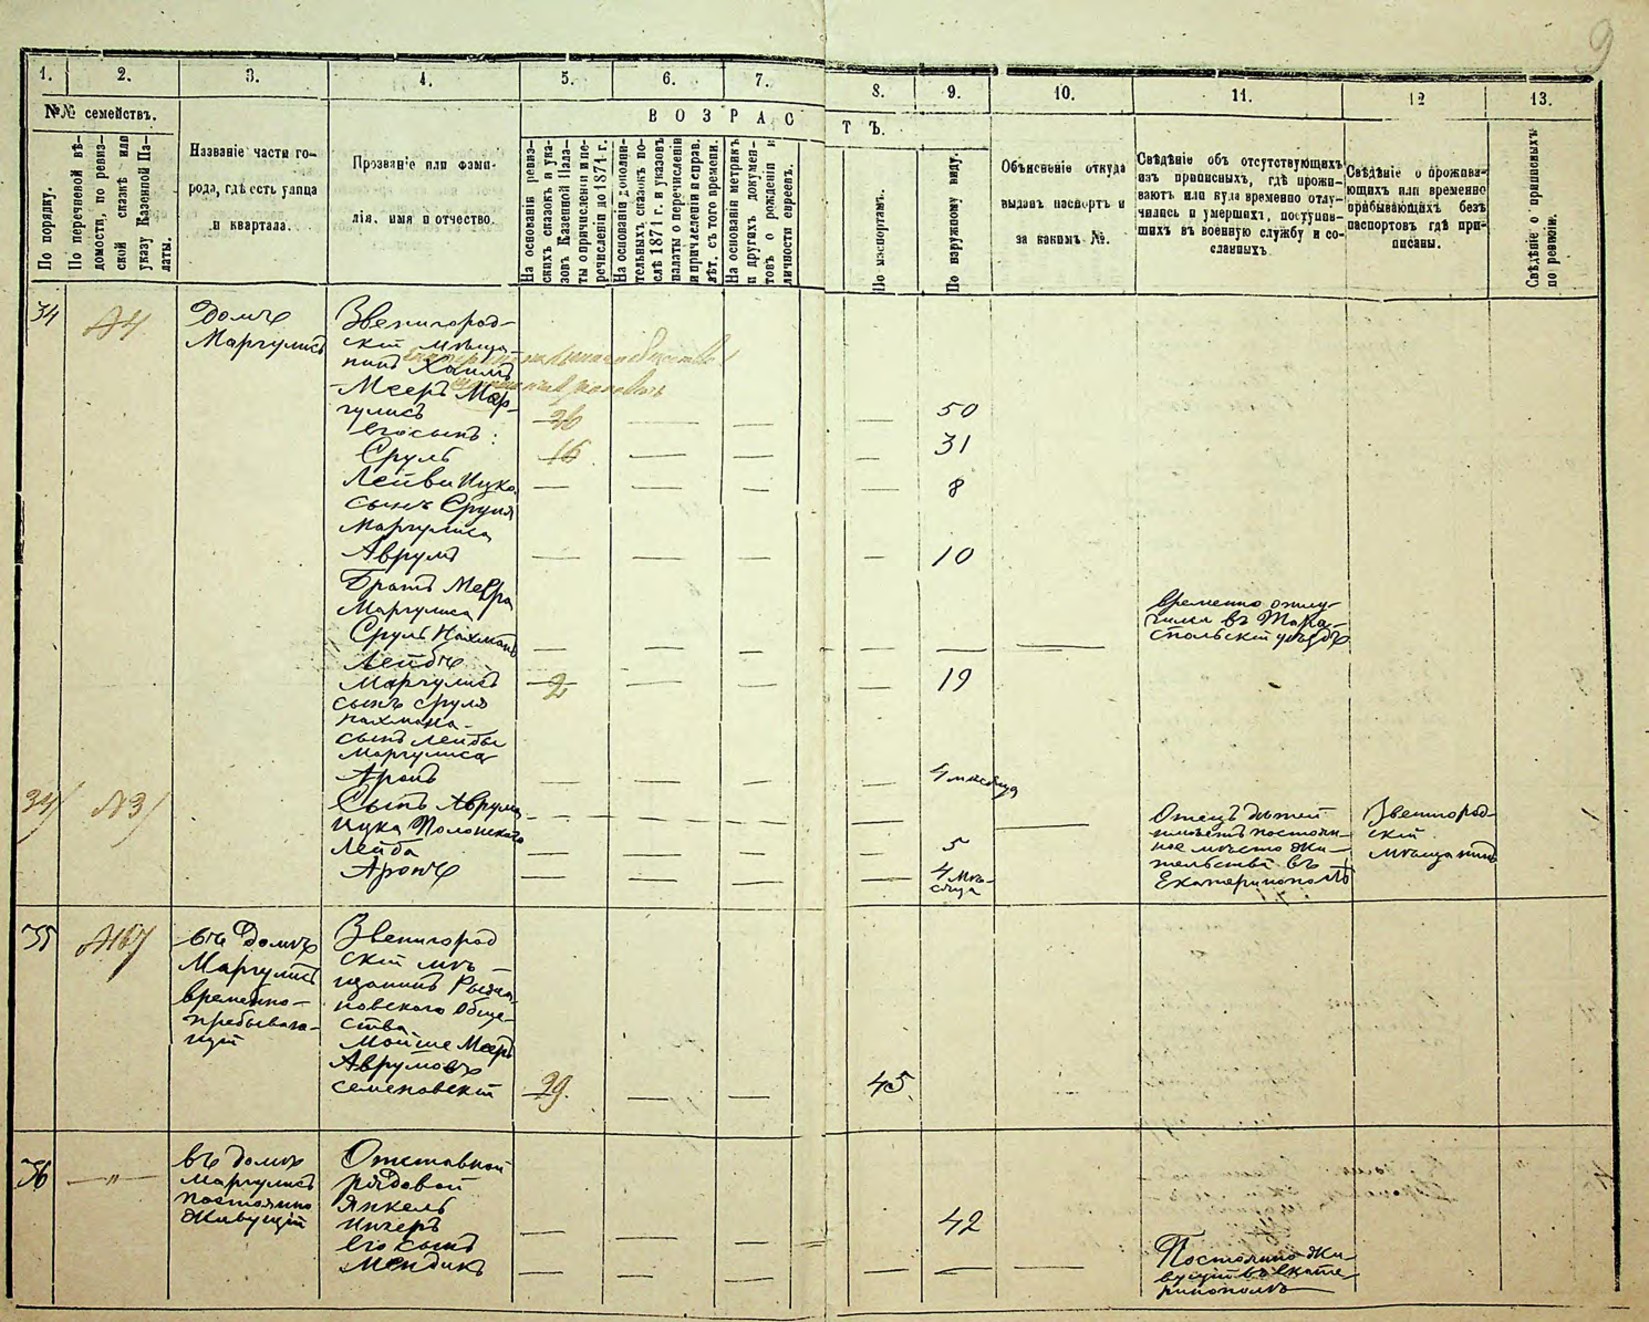 9
1. 2. 3. 4. 5. 6. 7. 8. 9. 10. 11. 12 13.
№№ семействъ.
По порядку.
По перечневой вѣ-
домости, по ревиз-
ской сказкѣ или
указу Казенной Па-
латы.
Названіе части го-
рода, гдѣ есть улица
и квартала.
Прозваніе или фами-
лія, имя и отчество.
ВОЗРАСТЪ.
На основаніи ревиз-
скихъ сказокъ и ука-
зовъ Казенной Пала-
ты о причисленіи и пе-
речисленіи до 1871 г.
На основаніи дополни-
тельныхъ сказокъ по-
слѣ 1871 г. и указовъ
палаты о перечисленіи
и причисленіи и справ.
лѣт. съ того времени.
На основаніи метрикъ
и другихъ докумен-
товъ о рожденіи и
личности евреевъ.
По паспортамъ.
По наружному виду.
Объясненіе откуда
выданъ паспортъ и
за какимъ №.
Свѣдѣніе объ отсутствующихъ
изъ приписныхъ, гдѣ прожи-
ваютъ или куда временно отлу-
чились и умершихъ, поступив-
шихъ въ военную службу и со-
сланныхъ.
Свѣдѣніе о прожива-
ющихъ или временно
прибывающихъ безъ
паспортовъ гдѣ при-
писаны.
Свѣдѣніе о приписныхъ
по ревизіи.
34
Домъ
Маргулисъ
Звенигород-
скій мѣща-
нинъ Хаимъ
-Мееръ Мар-
гулисъ
26 — — — 50
Его сынъ:
Сруль 16 — — — 31
Лейви Ицко — — — — 8
сынъ Сруля
Маргулиса
Аврумъ — — — — 10
Братъ Меера
Маргулиса
Сруль Нахманъ — — — — — —
временно отлу-
чился въ Тира-
спольскій уѣздъ
Лейбъ
Маргулисъ 2 — — — 19
сынъ Сруля
Нахмана
сынъ Лейбы
Маргулиса
Аронъ — — — — 4 мѣсяца
34 №3
Сынъ Аврума
Ицка Полонскаго
Лейба — — — — 5
Аронъ — — — — 4 мѣ-
сяца
Отецъ дѣтей
имѣетъ постоян-
ное мѣсто жи-
тельства въ
Екатеринополѣ
Звенигород-
скій
мѣщанинъ
35 №167
въ Домѣ
Маргулисъ
временно-
пребываю-
щій
Звенигород
скій мѣ-
щанинъ
новскаго Обще-
ства
Мойше Мееръ
Аврумовъ
Семеновскій 29. — — 45.
36 — " —
въ домѣ
Маргулисъ
постоянно
живущій
Отставной
рядовой
Янкель
Ингеръ — — — — 42
Его сынъ
Мендикъ — — — — — —
Постоянно жи-
вущій въ Екате-
ринополѣ